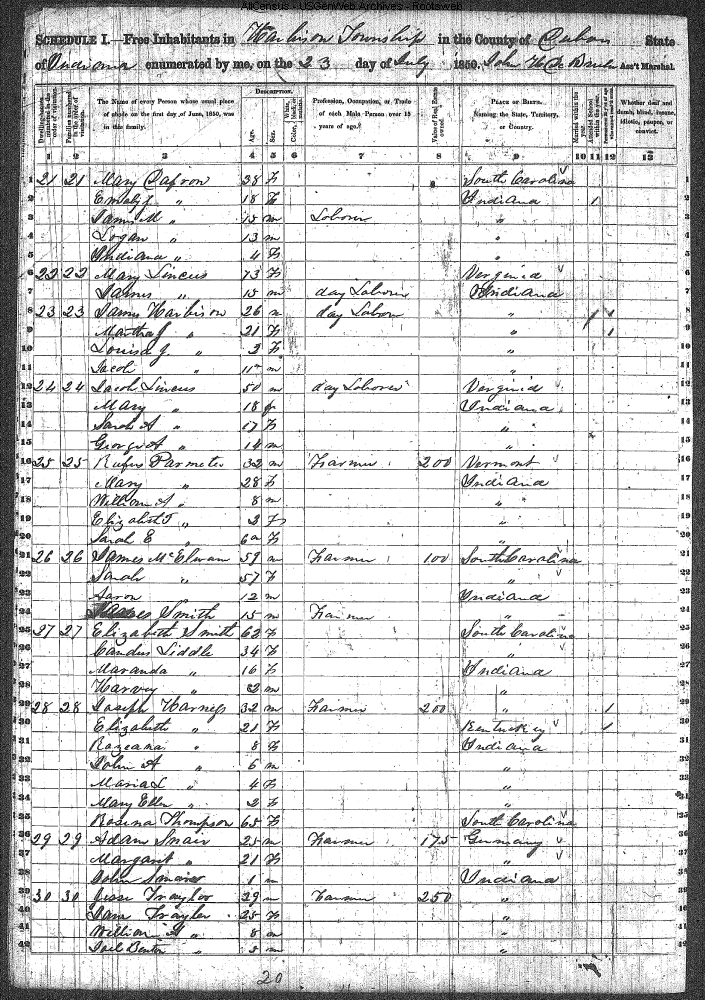 AllCensus - USGenWeb Archives - Rootsweb
SCHEDULE I.—Free Inhabitants in Harbison Township in the County of State
of Indiana enumerated by me, on the 23 day of July 1850. Ass't Marshal.
Dwelling-houses numbered in the order of visitation. Families numbered in the order of visitation. The Name of every Person whose usual place of abode on the first day of June, 1850, was in this family. DESCRIPTION. Age. Sex. Color, Profession, Occupation, or Trade of each Male Person over 15 years of age. Value of Real Estate owned. PLACE OF BIRTH. Naming the State, Territory, or Country. Married within the year. Attended School within the year. Whether deaf and dumb, blind, insane, idiotic, pauper, or convict.
1 2 3 4 5 6 7 8 9 10 11 12 13
1 21 21 Mary 38 F South Carolina 1
2 " 18 F Indiana 1 2
3 James M " 15 m Laborer " 3
4 Logan " 13 m " 4
5 Indiana " 4 F " 5
6 22 22 Mary Lineus 73 F Virginia 6
7 James " 15 m day Laborer Indiana 7
8 23 23 James Harbison 26 m day Labor " 1 1 8
9 Martha J " 21 F " 1 9
10 Louisa J. " 2 F " 10
11 Jacob " m " 11
12 24 24 Jacob Lineus 50 m day Laborer Virginia 12
13 Mary " 18 F Indiana 13
14 Sarah A " 17 F " 14
15 George A " 14 m " 15
16 25 25 Rufus Parmeter 32 m Farmer 200 Vermont 16
17 Mary " 28 F Indiana 17
18 William A " 8 m " 18
19 Elizabeth " 2 F " 19
20 Sarah E " F " 20
21 26 26 James McElwain 59 m Farmer 100 South Carolina 21
22 Sarah " 57 F " 22
23 Aaron 12 m Indiana 23
24 Smith 15 m Farmer " 24
25 27 27 Elizabeth Smith 62 F South Carolina 25
26 Liddle 34 F " 26
27 Maranda " 16 F Indiana 27
28 Harvey " 2 m " 28
29 28 28 Joseph Harness 32 m Farmer 200 " 1 29
30 Elizabeth " 21 F Kentucky 1 30
31 Rozeana " 8 F Indiana 31
32 John A " 6 m " 32
33 Maria L " 4 F " 33
34 Mary Ellen " 2 F " 34
35 Rosina Thompson 65 F South Carolina 35
36 29 29 Adam 25 m Farmer 175 Germany 36
37 Margaret " 21 F " 37
38 John 1 m Indiana 38
39 30 30 Jesse Traylor 29 m Farmer 250 " 39
40 Traylor 25 F " 40
41 William " 8 m " 41
42 Joel Benton " m " 42
20